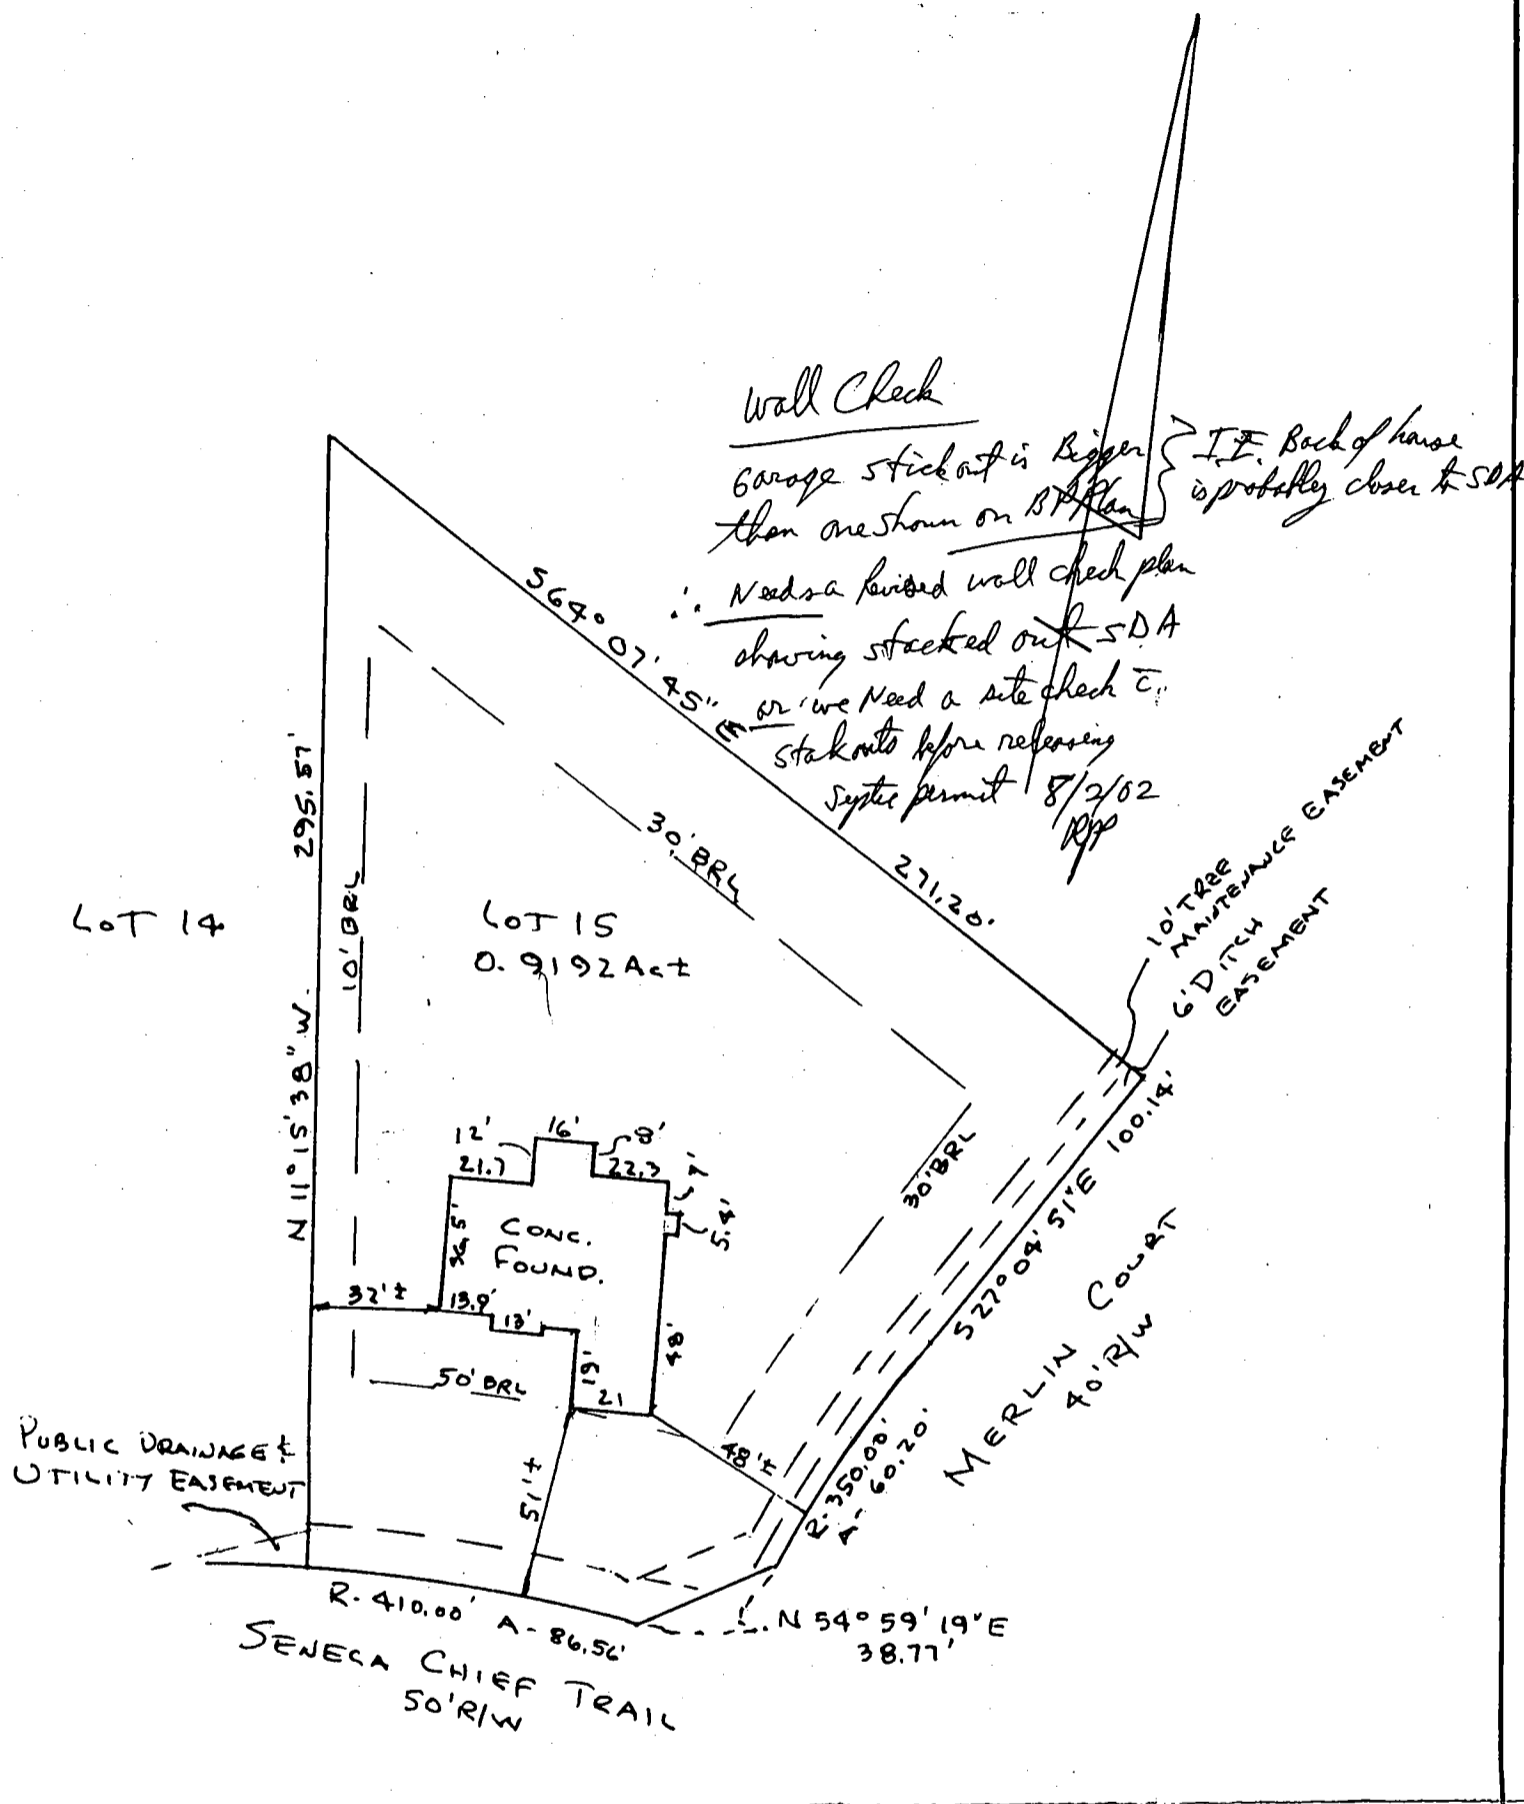 Wall Check
Garage stickout is Bigger
than one shown on BP Plan
I.E. Back of house
is probably closer to SDA
∴ Needs a Revised wall check plan
showing stacked out SDA
or we Need a site check c̄
stakouts before releasing
septic permit 8/2/02
S64° 07' 45" E
271.20'
295.57'
N 11° 15' 38" W.
10' BRL
30' BRL
LOT 14
LOT 15
0.9192 Ac±
10' TREE
MAINTENANCE EASEMENT
6' DITCH
EASEMENT
S27° 04' 51" E 100.14'
30' BRL
MERLIN COURT
40' R/W
12'
16'
8'
21.7
22.3
7'
5.4'
CONC.
FOUND.
32'±
13.9'
13'
48'
19'
21
50' BRL
48'±
51'±
PUBLIC DRAINAGE &
UTILITY EASEMENT
R-350.00'
A- 60.20'
R-410.00' A-86.56'
N 54° 59' 19" E
38.77'
SENECA CHIEF TRAIL
50' R/W